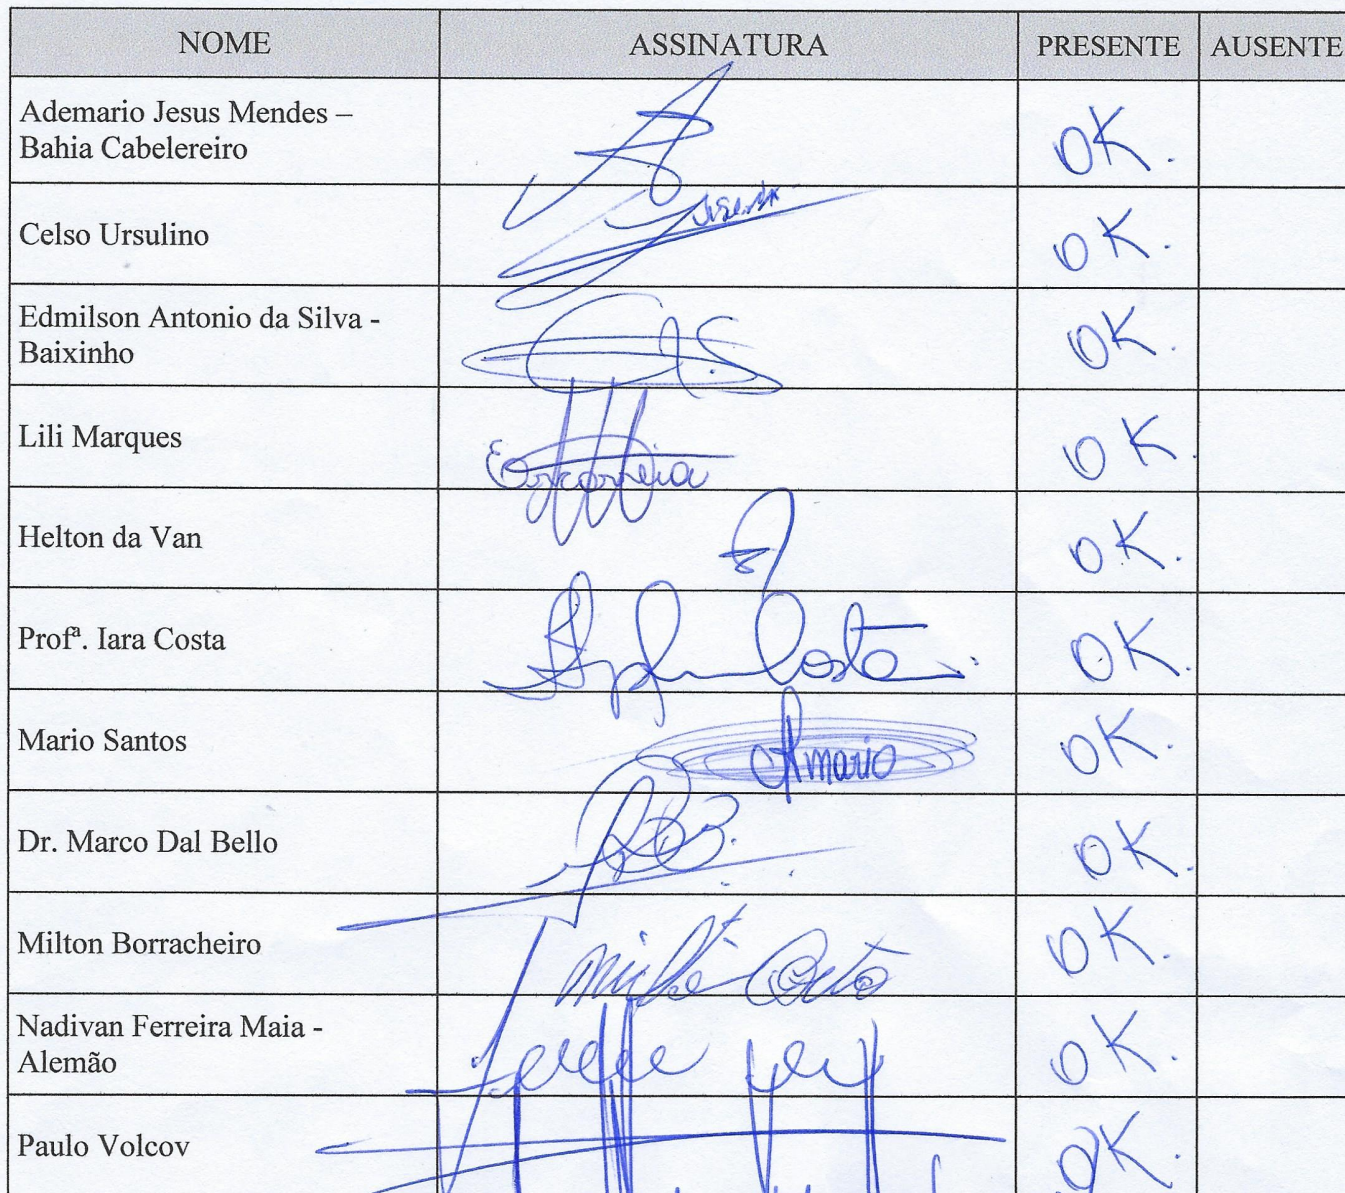 NOME ASSINATURA PRESENTE AUSENTE
Ademario Jesus Mendes –
Bahia Cabelereiro
OK.
Celso Ursulino
OK.
Edmilson Antonio da Silva -
Baixinho
OK.
Lili Marques
OK.
Helton da Van
OK.
Profª. Iara Costa
Costa
OK.
Mario Santos
mario
OK.
Dr. Marco Dal Bello
OK.
Milton Borracheiro
OK.
Nadivan Ferreira Maia -
Alemão
OK.
Paulo Volcov
OK.